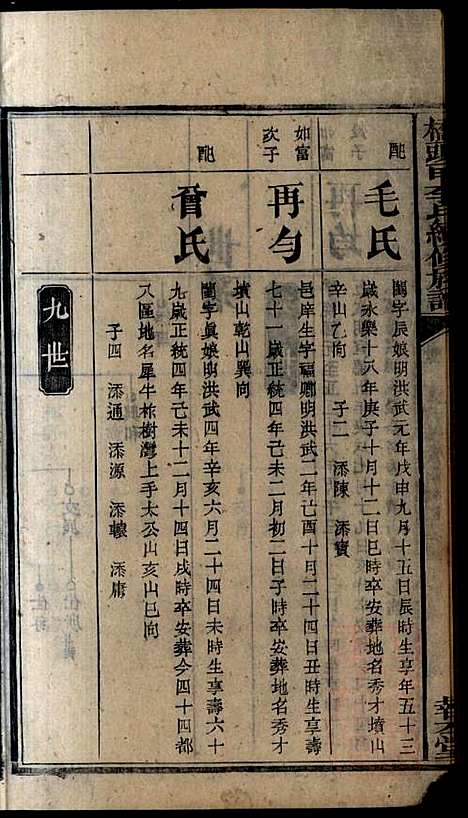 配
毛氏
閨字辰娘明洪武元年戊申九月十五日辰時生享年五十三
歲永樂十八年庚子十月十二日巳時卒安葬地名秀才墳山
辛山乙向 子二 添陳 添寳
如富
次子
再勻
邑庠生字福卿明洪武二年己酉十月二十四日丑時生享壽
七十一歲正統四年己未二月初二日子時卒安葬地名秀才
墳山乾山巽向
配
曾氏
閨字眞娘明洪武四年辛亥六月二十四日未時生享壽六十
九歲正統四年己未十二月十四日戌時卒安葬今四十四都
八區地名犀牛柞樹灣上手太公山亥山巳向
子四 添通 添源 添轅 添庸
九世